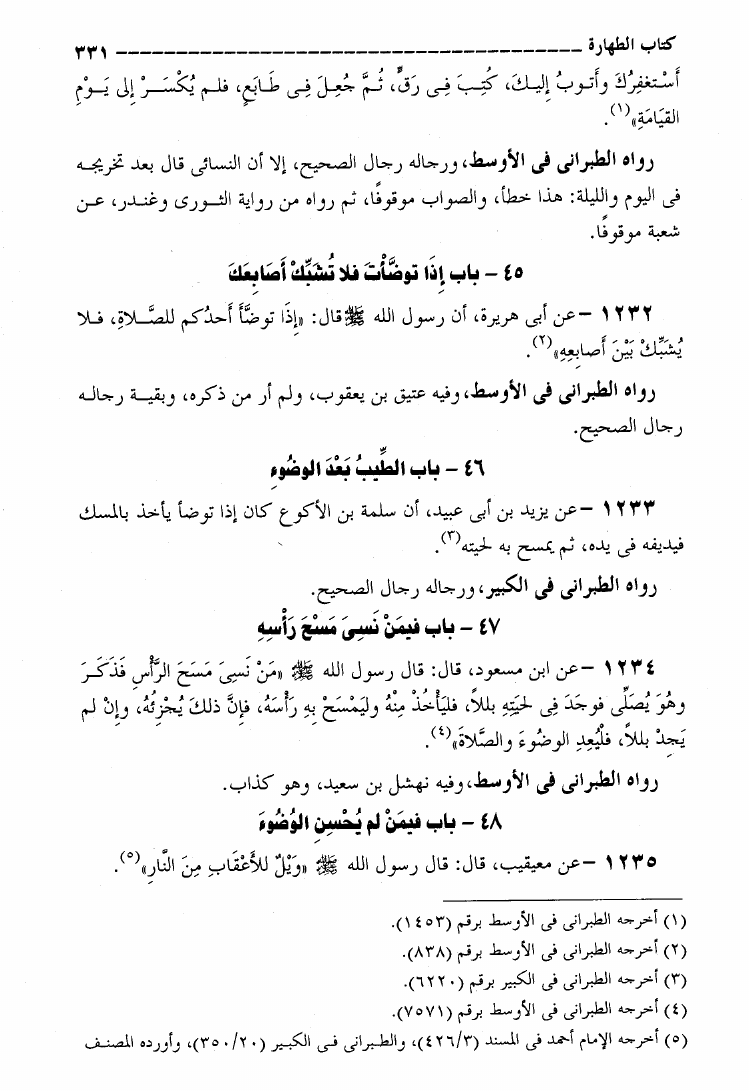 كتاب الطهارة ــــــــــــــــــــــــــــــــــــــــــــــــــــــــــــــ ٣٣١
أَسْتغفِرُكَ وأَتوبُ إِليكَ، كُتِبَ فِى رَقٍّ، ثُمَّ جُعِلَ فِى طَابَعٍ، فلم يُكْسَرْ إلى يَوْمِ
القيَامَةِ»(١).
رواه الطبرانى فى الأوسط، ورجاله رجال الصحيح، إلا أن النسائى قال بعد تخريجه
فى اليوم والليلة: هذا خطأ، والصواب موقوفًا، ثم رواه من رواية الثورى وغندر، عن
شعبة موقوفًا.
٤٥ – باب إِذَا توضَّأْتَ فلا تُشَبِّكْ أَصَابِعَكَ
١٢٣٢ – عن أبى هريرة، أن رسول الله ﷺ قال: «إِذَا توضَّأَ أَحدُكم للصَّلاةِ، فلا
يُشَبِّكْ بَيْنَ أصابعِهِ»(٢).
رواه الطبرانى فى الأوسط، وفيه عتيق بن يعقوب، ولم أر من ذكره، وبقية رجاله
رجال الصحيح.
٤٦ – باب الطِّيبُ بَعْدَ الوضُوءِ
١٢٣٣ – عن يزيد بن أبى عبيد، أن سلمة بن الأكوع كان إذا توضأ يأخذ بالمسك
فيديفه فى يده، ثم يمسح به لحيته(٣).
رواه الطبرانى فى الكبير، ورجاله رجال الصحيح.
٤٧ – باب فيمَنْ نَسِىَ مَسْحَ رَأْسِهِ
١٢٣٤ – عن ابن مسعود، قال: قال رسول الله ﷺ «مَنْ نَسِىَ مَسَحَ الرَّأْسِ فَذَكَرَ
وهُوَ يُصَلِّى فوجَدَ فِى لحيَتِهِ بللاً، فليَأْخُذْ مِنْهُ وليَمْسَحْ بِهِ رأْسَهُ، فإِنَّ ذلكَ يُجْزِئُهُ، وإِنْ لم
يَجِدْ بللاً، فلْيُعِدِ الوضُوءَ والصَّلاةَ»(٤).
رواه الطبرانى فى الأوسط، وفيه نهشل بن سعيد، وهو كذاب.
٤٨ – باب فيمَنْ لم يُحْسِنِ الوُضُوءَ
١٢٣٥ – عن معيقيب، قال: قال رسول الله ﷺ «وَيْلٌ للأَعْقَابِ مِنَ النَّارِ»(٥).
(١) أخرجه الطبرانى فى الأوسط برقم (١٤٥٣).
(٢) أخرجه الطبرانى فى الأوسط برقم (٨٣٨).
(٣) أخرجه الطبرانى فى الكبير برقم (٦٢٢٠).
(٤) أخرجه الطبرانى فى الأوسط برقم (٧٥٧١).
(٥) أخرجه الإمام أحمد فى المسند (٤٢٦/٣)، والطبرانى فى الكبير (٣٥٠/٢٠)، وأورده المصنف